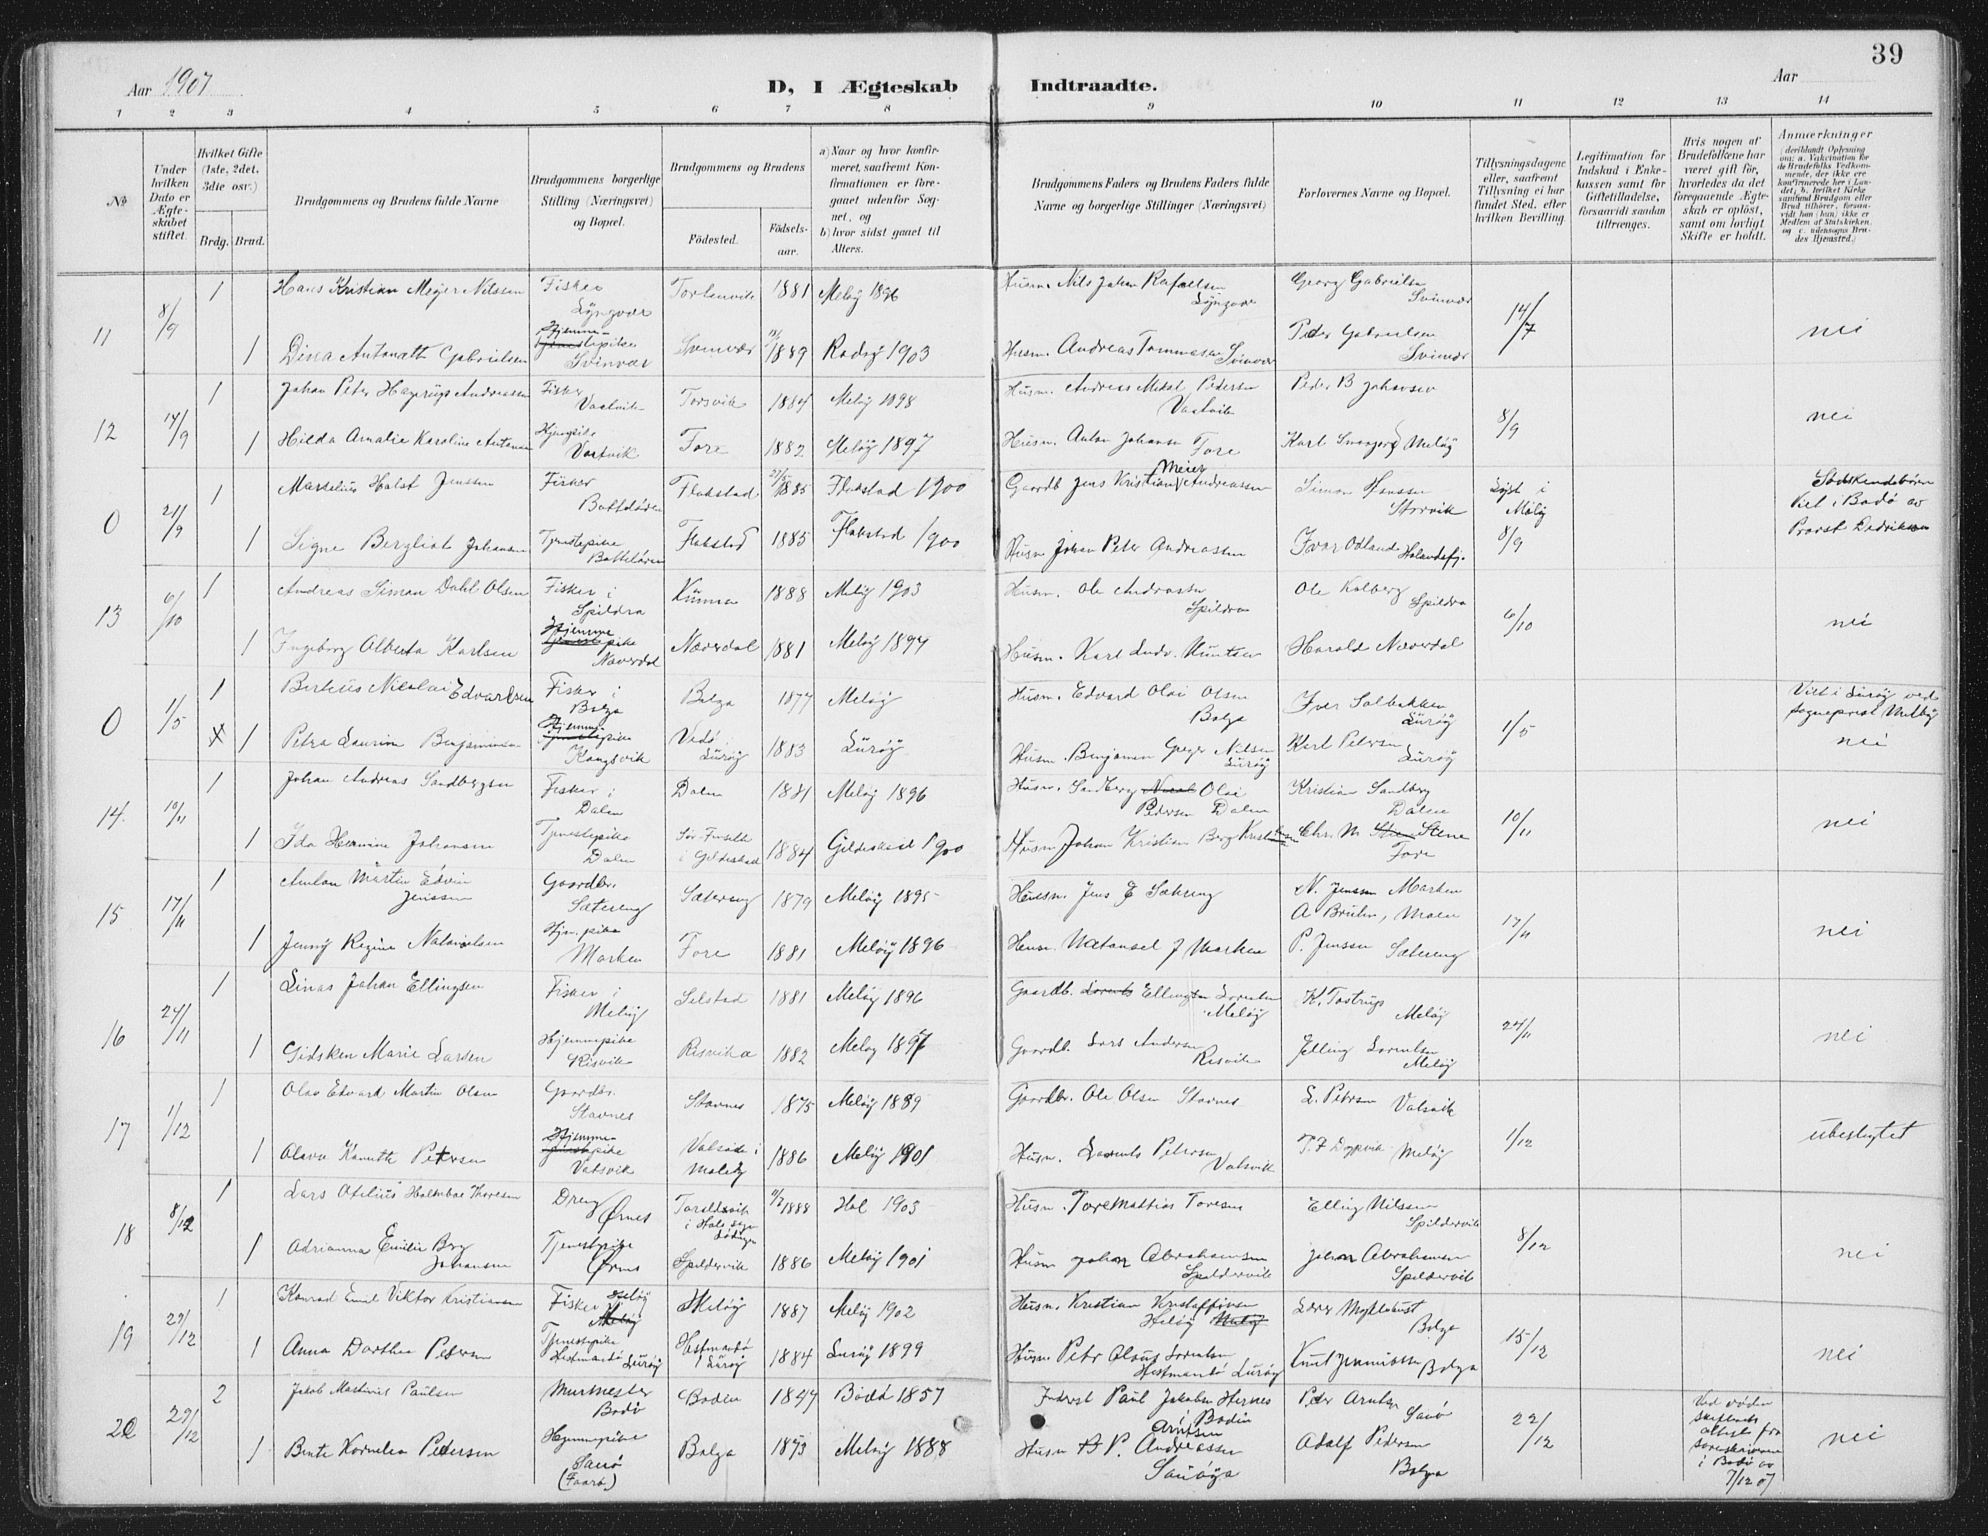 39
Aar 1907
D, I Ægteskab Indtraadte.
Aar
1 2 3 4 5 6 7 8 9 10 11 12 13 14
No
Under hvilken Dato er Ægteskabet stiftet.
Hvilket Gifte (1ste, 2det, 3die osv.)
Brdg. Brud.
Brudgommens og Brudens fulde Navne
Brudgommens borgerlige Stilling (Næringsvei) og Bopæl.
Brudgommens og Brudens
Födested.
Födselsaar.
a) Naar og hvor konfirmeret, saafremt Konfirmationen er foregaaet udenfor Sognet, og
b) hvor sidst gaaet til Alters.
Brudgommens Faders og Brudens Faders fulde Navne og borgerlige Stillinger (Næringsvei)
Forlovernes Navne og Bopæl.
Tillysningsdagene eller, saafremt Tillysning ei har fundet Sted, efter hvilken Bevilling.
Legitimation for Indskud i Enkekassen samt for Giftetilladelse, forsaavidt saadan tiltrænges.
Hvis nogen af Brudefolkene har været gift för, hvorledes da det foregaaende Ægteskab er oplöst, samt om lovligt Skifte er holdt.
Anmærkninger
(deriblandt Oplysning om: a. Vakcination for de Brudefolks Vedkommende, der ikke ere konfirmerede her i Landet; b. hvilket Kirkesamfund Brudgom eller Brud tilhörer, forsaavidt han (hun) ikke er Medlem af Statskirken, og c. udensogns Brudes Hjemsted.)
11 8/9 1 Hans Kristian Meyer Nilssen Fisker Lyngvær 1881 Meløy 1896 Husm. Nils Johan Rafaelsen Georg Gabrielsen Svinvær 14/7 nei
1 Dina Antonette Gabrielsen Hjemmepike Svinvær Svinvær 1889 Rødøy 1903 Husm. Andreas Tommasen Svinvær Peder Gabrielsen Svinvær
12 14/9 1 Johan Peter Hagerup Andreassen Fisker Vastvik Torsvik 1884 Meløy 1898 Husm. Andreas Mikal Pedersen Vastvik Peder B Johansen 8/9 nei
1 Hilda Amalie Karoline Antonsen Hjempike Vastvik Fore 1882 Meløy 1897 Husm. Anton Johansen Fore Karl Meløy
0 21/9 1 Markelius Holst Jenssen Fisker 27/5 1885 Flakstad 1900 Gaardb. Jens Kristian Meier Andreassen Simon Hanssen Storvik Lyst i Meløy 8/9 Södskendebörn Viet i Bodø av Provst
1 Signe Bergliot Johansen Tjenestepike Flakstad 1885 Flakstad 1900 Husm Johan Peter Andreassen Ivar Odland Holandsfj.
13 6/10 1 Andreas Simon Dahl Olsen Fisker i Spildra Kunna 1888 Meløy 1903 Husm. Ole Andreassen Spildra Ole Kolberg Spildra 6/10 nei
1 Ingeborg Alberta Karlsen Hjemmepike Næverdal Næverdal 1881 Meløy 1897 Husm. Karl Ludv. Knutsen Harald Næverdal
0 1/5 1 Bertius Nikolai Edvardsen Fisker i Bolga Bolga 1877 Meløy Husm. Edvard Olai Olsen Bolga Iver Solbakken Lurøy 1/5 Viet i Lurøy ved sogneprest
1 Petra Laurine Benjaminsen Hjemmepike Lurøy 1883 Lurøy Husm. Benjamin Greger Nilsen Lurøy Karl Petersen Lurøy nei
14. 10/11 1 Johan Andreas Sandbergsen Fisker i Dalen Dalen 1881 Meløy 1896 Husm. Sandberg Olai Pedersen Dalen Kristian Sandberg Dalen 10/11 nei
1 Ida Hermine Johansen Tjenestepike Dalen i Gildeskaal 1884 Gildeskaal 1900 Husm Johan Kristian Berg Kristensen Chr. M Stene Fore
15 17/11 1 Anton Martin Edvin Jenssen Gaardbr. Sætereng Sætereng 1879 Meløy 1895 Husm. Jens E Sætereng N. Jenssen Marken A Bruhn, Moen 17/11 nei
1 Jenny Regine Natanielsen Hjm. pike Marken Fore 1881 Meløy 1896 Husm. Natanael J Marken P. Jenssen Sætereng
16 24/11 1 Linas Johan Ellingsen Fisker i Meløy Selstad 1881 Meløy 1896 Gaardb. Ellingsen Lorentsen Meløy K. Tostrup Meløy 24/11 nei
1 Gidsken Marie Larsen Hjemmepike Risvik Risvik 1882 Meløy 1897 Gaardb. Lars Andersen Risvik Elling Lorentsen Meløy
17 1/12 1 Olav Edvard Martin Olsen Gaardbr. Stavnes Stavnes 1875 Meløy 1889 Gaardbr. Ole Olsen Stavnes L. Petersen Valsvik 1/12 ubeslegtet
1 Petersen Hjemmepike Valsvik i Meløy 1886 Meløy 1901 Husm. Lorents Petersen Valsvik Meløy
18 8/12 1 Lars Ofelius Thoresen Dreng Ørnes 1888 Hol 1903 Husm. Tore Mattias Toresen Elling Nilssen Spildervik 8/12 nei
1 Adrianna Emilie Berg Johansen Tjenestepike Ørnes Spildervik 1886 Meløy 1901 Husm Johan Abrahamsen Spildervik Johan Abrahamsen Spildervik
19 29/12 1 Konrad Emil Viktor Kristiansen Fisker Meløy 1887 Meløy 1902 Husm. Kristian Kristoffersen Lars Myklebust Bolga 15/12 nei
1 Anna Dorthea Petersen Tjenestepike Hestmanø Lurøy Hestmanø Lurøy 1884 Lurøy 1899 Husm. Petr Olaus Lorentsen Hestmanø Lurøy Knut Bolga
20 29/12 2 Jakob Martinus Paulsen Murmester Bodø Bodin 1847 Bodø 1857 Inderst Paul Jakobsen Hernes i Bodin Peder Arntsen Sauø 22/12 Ved døden skiftends attest fra sorenskriveren i Bodø av 7/12 07 nei
1 Bente Kornelia Pedersen Hjemmepike Sauø Bolga 1873 Meløy 1888 Husm P. Arntsen Andreassen Sauøya Adolf Pedersen Bolga